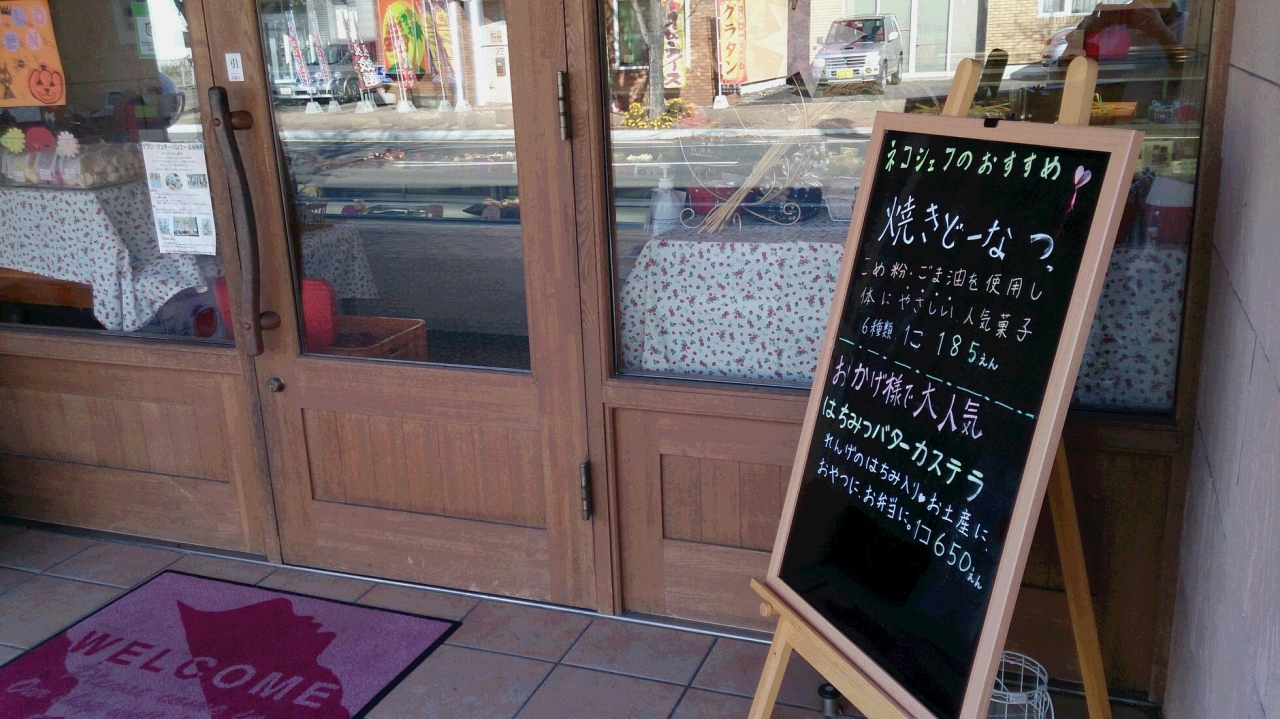 ネコシェフのおすすめ
焼きどーなつ
こめ粉・ごま油を使用し
体にやさしい人気菓子
6種類 1コ 185えん
おかげ様で大人気
はちみつバターカステラ
れんげのはちみ入り♥お土産に
おやつに、お弁当に。1コ650えん
WELCOME
グラタン